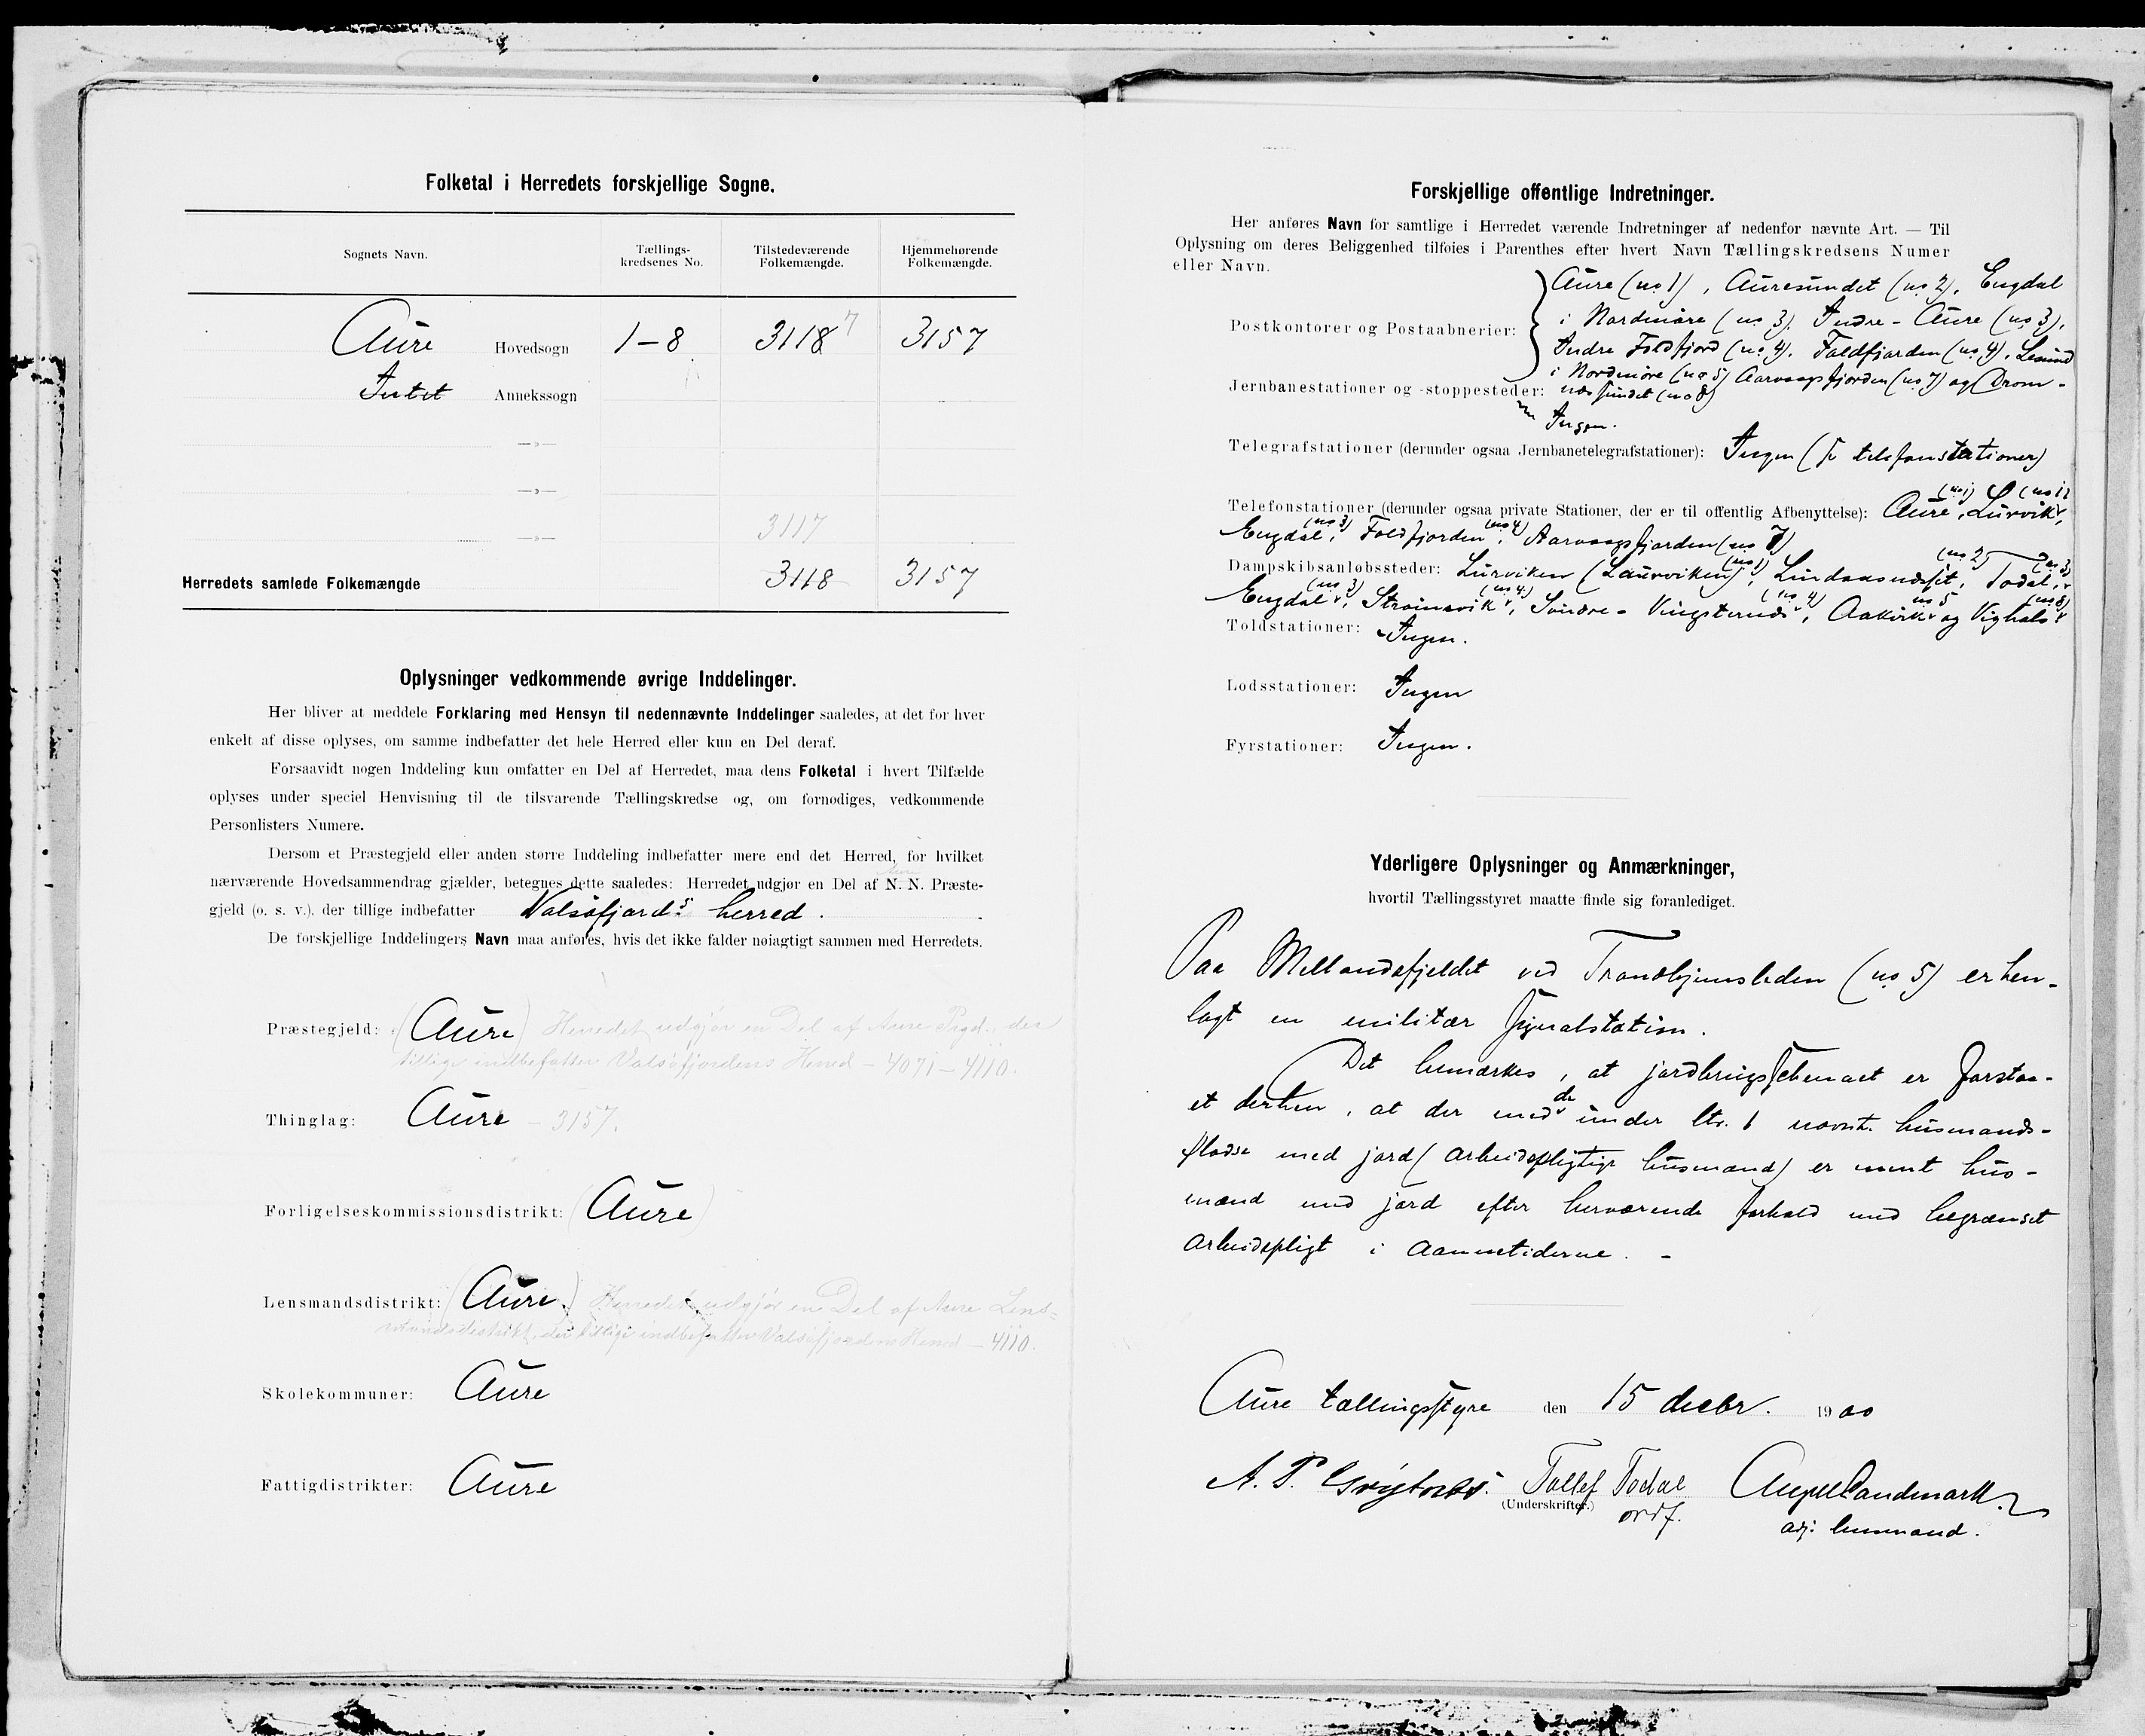 Folketal i Herredets forskjellige Sogne.
Sognets Navn.
Tællings-
kredsenes No.
Tilstedeværende
Folkemængde.
Hjemmehørende
Folkemængde.
Aure Hovedsogn 1-8 3118 7 3157
Intet Annekssogn
—»—
—»—
3117
—»—
Herredets samlede Folkemængde 3118 3157
Oplysninger vedkommende øvrige Inddelinger.
Her bliver at meddele Forklaring med Hensyn til nedennævnte Inddelinger saaledes, at det for hver
enkelt af disse oplyses, om samme indbefatter det hele Herred eller kun en Del deraf.
Forsaavidt nogen Inddeling kun omfatter en Del af Herredet, maa dens Folketal i hvert Tilfælde
oplyses under speciel Henvisning til de tilsvarende Tællingskredse og, om fornødiges, vedkommende
Personlisters Numere.
Dersom et Præstegjeld eller anden større Inddeling indbefatter mere end det Herred, for hvilket
Aure
nærværende Hovedsammendrag gjælder, betegnes dette saaledes: Herredet udgjør en Del af N. N. Præste-
gjeld (o. s. v.). der tillige indbefatter Valsøfjord's herred.
De forskjellige Inddelingers Navn maa anføres, hvis det ikke falder nøiagtigt sammen med Herredets.
Præstegjeld: (Aure) Herredet udgjør en Del af Aure Prgd., der
tillige indbefatter Valsøfjordens Herred - 4071 - 4110.
Thinglag: Aure - 3157.
Forligelseskommissionsdistrikt: (Aure)
Lensmandsdistrikt: (Aure.) Herredet udgjør en Del af Aure Lens-
mandsdistrikt, der tillige indbefatter Valsøfjordens Herred - 4110.
Skolekommuner: Aure
Fattigdistrikter: Aure
Forskjellige offentlige Indretninger.
Her anføres Navn for samtlige i Herredet værende Indretninger af nedenfor nævnte Art. — Til
Oplysning om deres Beliggenhed tilføies i Parenthes efter hvert Navn Tællingskredsens Numer
eller Navn.
Aure (no 1), Auresundet (no 2), Engdal
i Nordmøre (no 3), Indre-Aure (no 3),
Postkontorer og Postaabnerier:
Indre Foldfjord (no 4), Foldfjorden (no 4), Lesund
i Nordmøre (no 5) Aarvaagsfjorden (no 7) og Drom-
Jernbanestationer og -stoppesteder: næssundet (no 8)
Ingen.
Telegrafstationer (derunder ogsaa Jernbanetelegrafstationer): Ingen (5 telefonstationer)
(no 1) (no 1)
Telefonstationer (derunder ogsaa private Stationer, der er til offentlig Afbenyttelse): Aure, Lurvik,
(no 3) (no 4)
Engdal, Foldfjorden, Aarvaagsfjorden (no 7)
(no 1) (no 2) (no 3)
Dampskibsanløbssteder: Lurviken (Laurviken), Lindaasnæsset, Todal,
(no 3) (no 4) (no 4) no 5 (no 8)
Engdal, Strømsvik, Søndre-Vingsternes, Aakvik og Vighals
Toldstationer: Ingen.
Lodsstationer: Ingen
Fyrstationer: Ingen.
Yderligere Oplysninger og Anmærkninger,
hvortil Tællingsstyret maatte finde sig foranlediget.
Paa Mellandsfjeldet ved Trondhjemsleden (no 5) er hen-
lagt en militær Signalstation.
Det bemærkes, at jordbrugsschemaet er forstaa-
de
et derhen, at der med under ltr. b nævnt. husmands-
pladse med jord (arbeidspligtige husmænd) er ment hus-
mænd med jord efter herværende forhold med begrænset
arbeidspligt i aannetiderne. -
Aure tællingsstyre den 15 decbr. 1900
A. P. Tollef Todal Landmark
(Underskrifter.)
ordf. adj: lensmand.